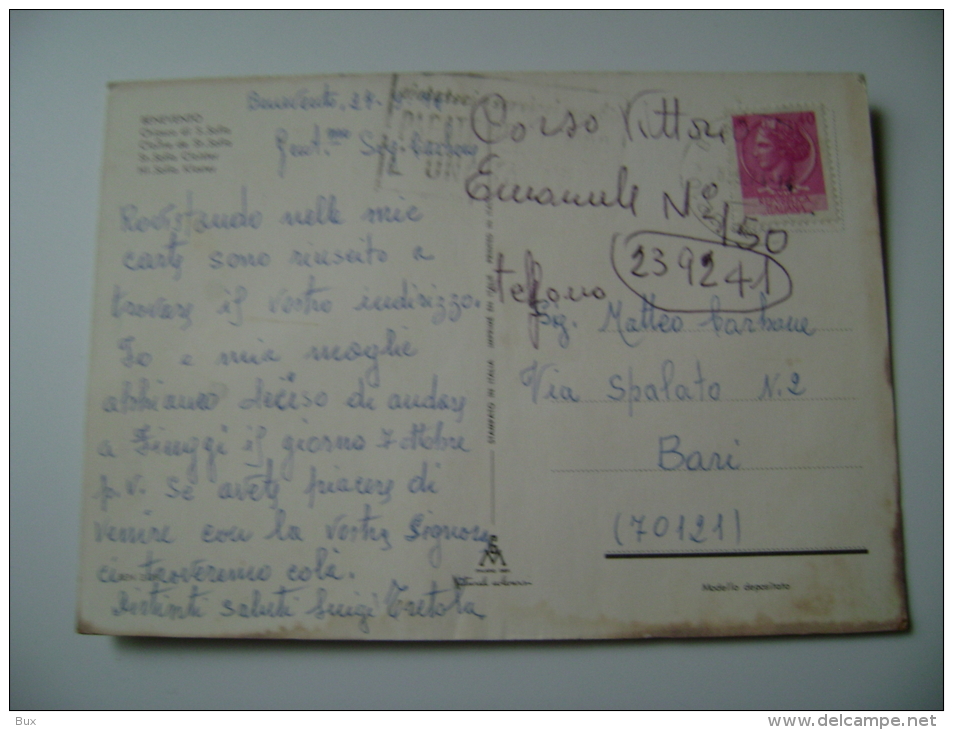 BENEVENTO
Chiesa di S. Sofia
St. Sofia
Benevento, 24-
Gent.mo Sig. Carbone
Rovistando nelle mie
carte sono riuscito a
trovare il vostro indirizzo.
Io e mia moglie
abbiamo deciso di andare
a Fiuggi il giorno 7 ottobre
p.v. Se avete piacere di
venire con la vostra Signora
ci troveremo colà.
Distinti saluti Luigi Tretola
Corso Vittorio
Emanuele N° 150
telefono 239241
Sig. Matteo Carbone
Via Spalato N. 2
Bari
(70121)
Modello depositato
Bux
www.delcampe.net